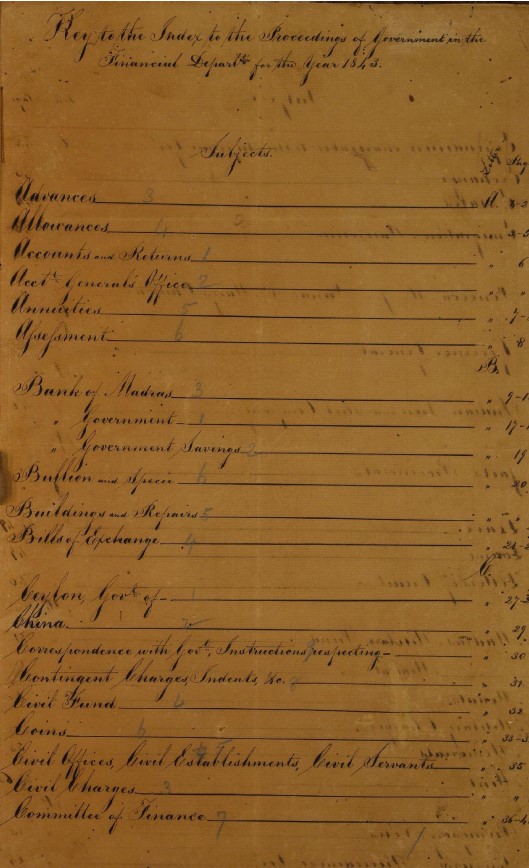 Key to the Index to the Proceedings of Government in the
Financial Departt. for the Year 1843.
Subjects.
Advances 3 A.
Allowances 4
Accounts and Returns 1 " 6
Acctt. General's Office 2 " "
Annuities 5 " 7-
Assessment 6 " 8
B.
Bank of Madras 3 " 9-1
" Government 1 " 17-1
" Government Savings 2 " 19
Bullion and Specie 6 " 20
Buildings and Repairs 5 " "
Bills of Exchange 4 " 21-2
C.
Ceylon, Govt. of 1 " 27-3
China 2 " 29
Correspondence with Govt., Instructions respecting " 30
Contingent Charges, Indents, &c. " 31
Civil Fund " 32
Coins 6 " 33-3
Civil Offices, Civil Establishments, Civil Servants " 35
Civil Charges 3 " "
Committee of Finance 7 " 36-4